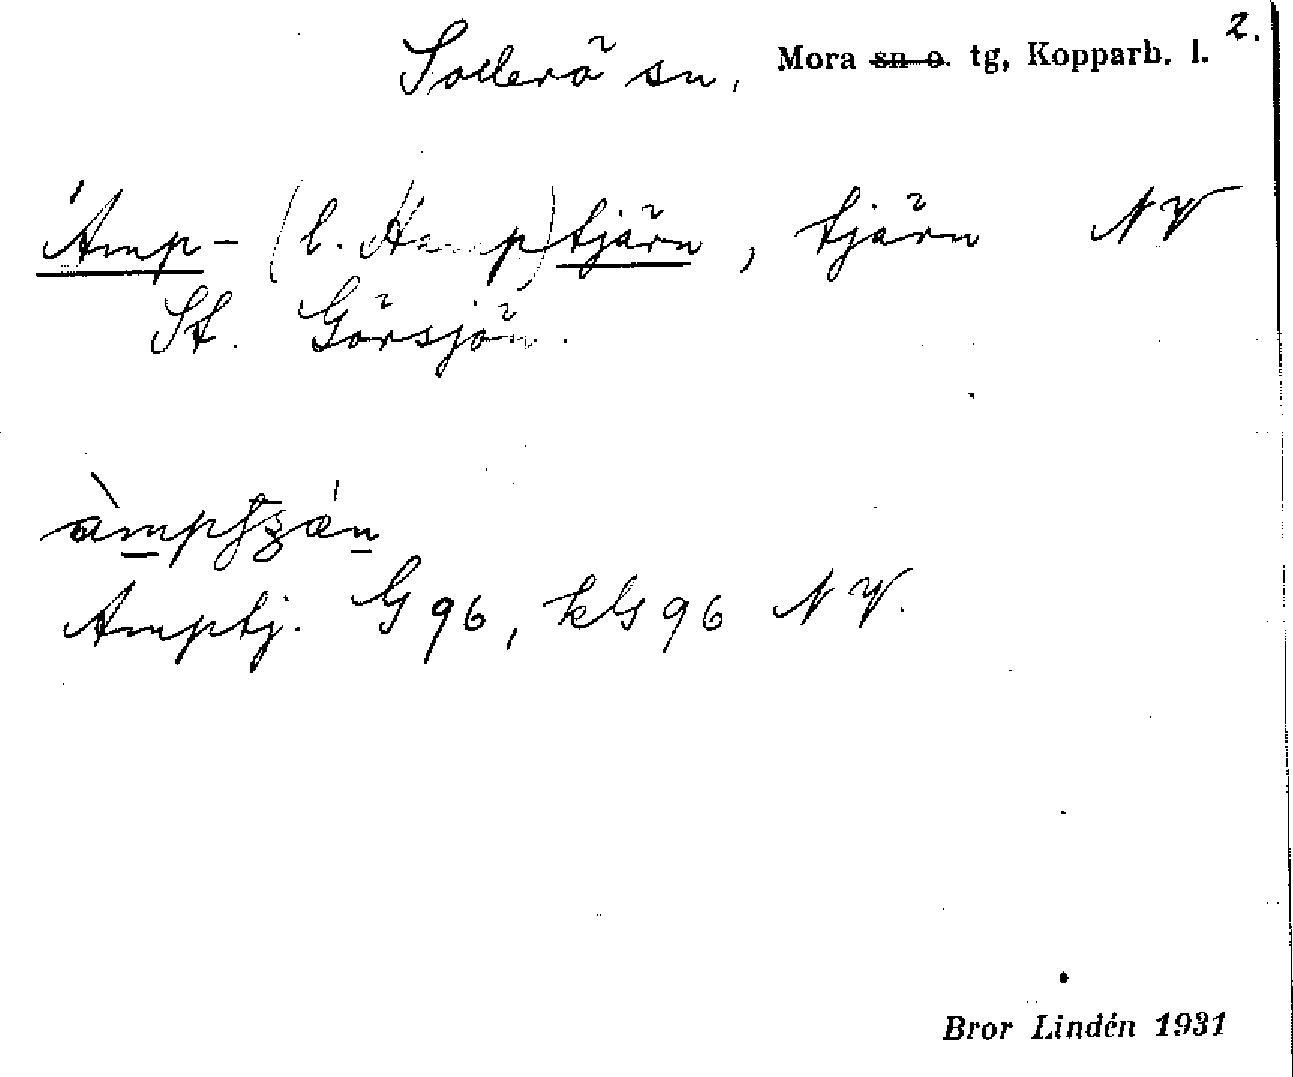 Sollerö sn, Mora sn o. tg, Kopparb. l. 2.
'Amp- (l. Hamp)tjärn, tjärn NV
St. Görsjön.
Amptj. G 96, kG 96 NV.
Bror Lindén 1931